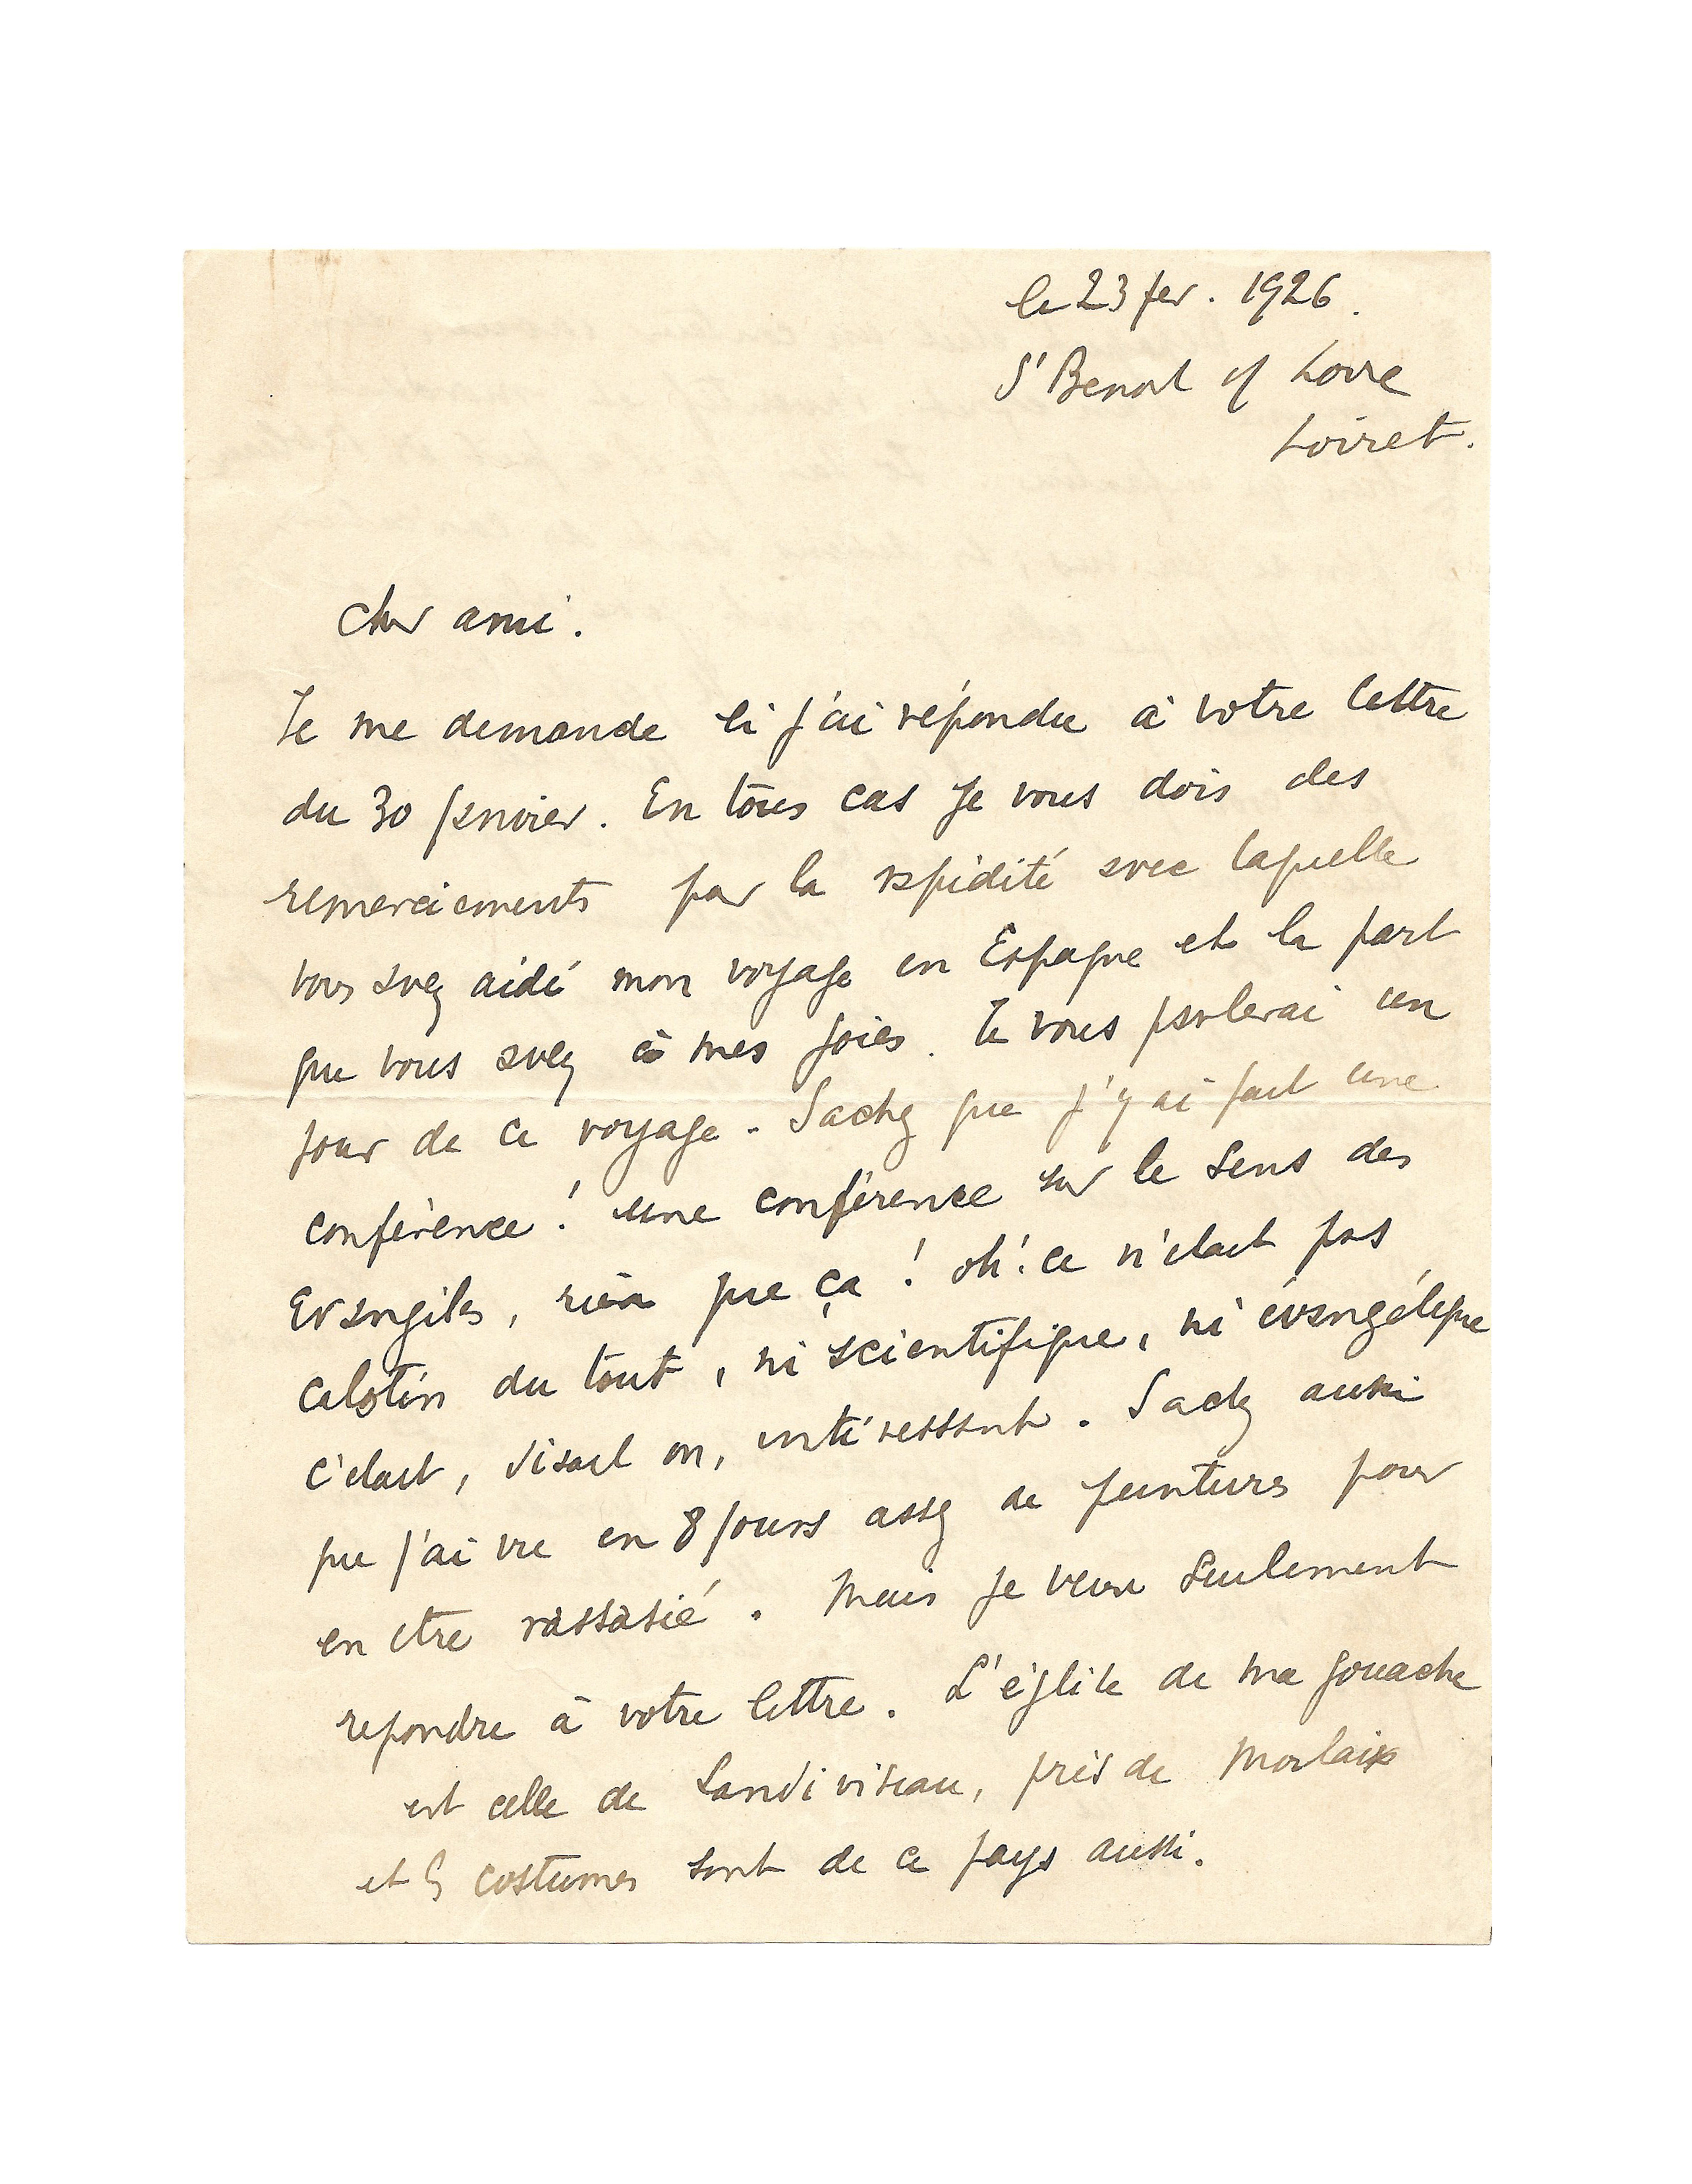 le 23 fev. 1926.
St Benoit s/ Loire
Loiret.
Cher ami.
Je me demande si j'ai répondu à votre lettre
du 30 janvier. En tous cas je vous dois des
remerciements par la rapidité avec laquelle
vous avez aidé mon voyage en Espagne et la part
que vous avez à mes joies. Je vous parlerai un
jour de ce voyage. Sachez que j'y ai fait une
conférence! une conférence sur le sens des
Evangiles, rien que ça! oh! ce n'etait pas
calotin du tout, ni scientifique, ni évangélique
c'etait, disait on, intéressant. Sachez aussi
que j'ai vu en 8 jours assez de peintures pour
en etre rassasié. Mais je veux seulement
repondre à votre lettre. L'église de ma gouache
est celle de Landivisiau, près de Morlaix
et les costumes sont de ce pays aussi.